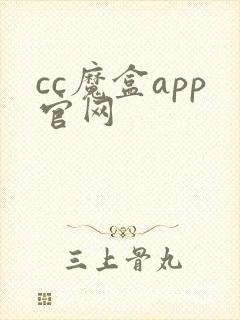 cc魔盒app
官网
三上骨丸